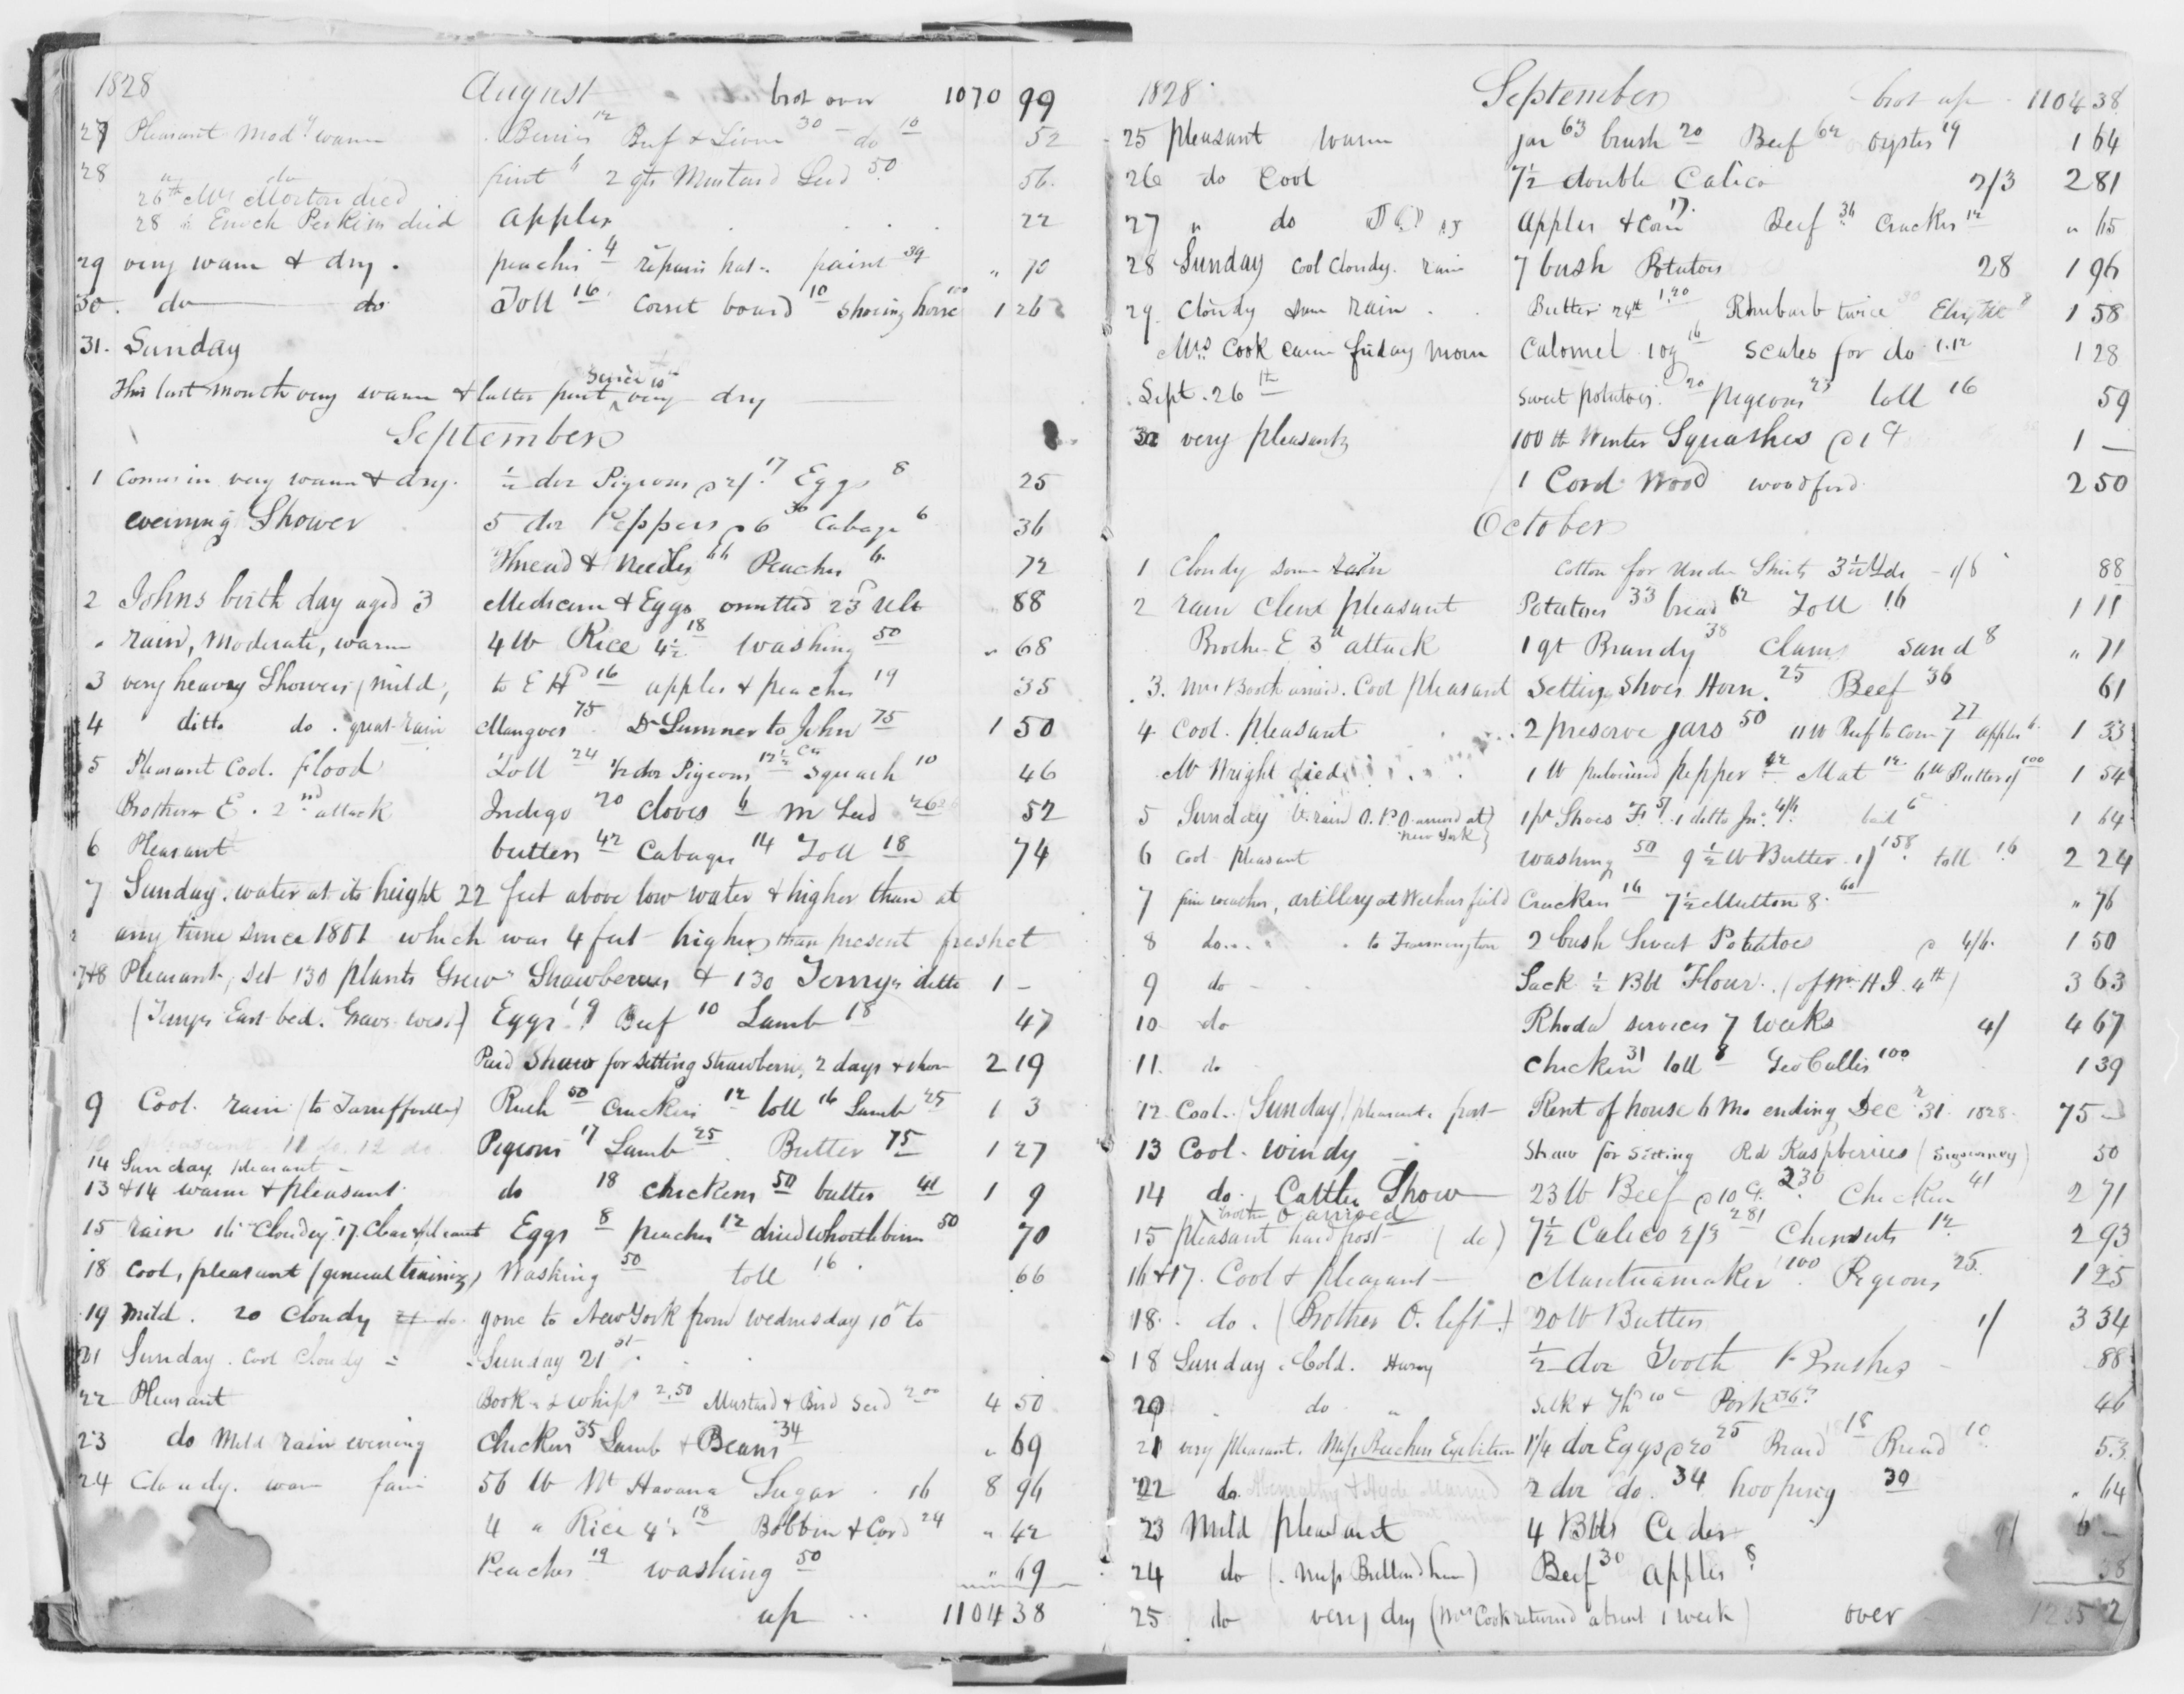 1828 August brot over 1070 99
27 Pleasant Mod.y warm Berries 12 Beef & Liver 30 do 10 52
28 " do pint 6 2 qts Mustard Seed 50 56
26th Mr Morton died
28 " Enoch Perkins died apples 22
29 very warm & dry. peaches 4 repairs hat paint 39 " 70
30. do do Toll 16 corset board 10 shoeing horse 100 1 26
31. Sunday
This last month very warm & latter part since 10th very dry
September
1 comes in very warm & dry. ½ doz Pigeons @ 2/. 17 Eggs 8 25
evening Shower 5 doz Peppers @ 6 30 Cabage 6 36
Thread & Needles 66 Peaches 6 72
2 Johns birth day aged 3 Medicine & Eggs omitted 23d ult 88
" rain, Moderate, warm 4 lb Rice 4½ 18 Washing 50 " 68
3 very heavy Showers (mild, to E H P 16 apples & peaches 19 35
4 ditto do. great rain Mangoes 75 Dr Sumner to John 75 1 50
5 Pleasant Cool. flood Toll 24 ½ doz Pigeons 12½ Squash 10 46
Brother E. 2nd attack Indigo 20 cloves 6 M Seed 26 52
6 Pleasant butter 42 Cabages 14 Toll 18 74
7 Sunday. water at its height 22 feet above low water & higher than at
any time since 1801 which was 4 feet higher than present freshet
7&8 Pleasant, set 130 plants Grew's Strawberries & 130 Terry's ditto 1 –
(Terrys East bed. Graves west) Eggs 19 Beef 10 Lamb 18 47
Paid Shaw for setting Strawberries, 2 days & 2 19
9 Cool. rain (to Tariffville) Rush 50 Crackers 12 toll 16 Lamb 25 1 3
10 Pleasant 11 do. 12 do. Pigeons 17 Lamb 25 Butter 75 1 27
14 Sunday pleasant
13 & 14 warm & pleasant do 18 chickens 50 butter 41 1 9
15 rain 16 Cloudy 17 Clear & pleasant Eggs 8 peaches 12 dried whortleberries 50 70
18 Cool, pleasant (general training) Washing 50 toll 16 66
19 Mild. 20 Cloudy 21 do. gone to New York from Wednesday 10th to
21 Sunday. Cool Cloudy Sunday 21st
22 Pleasant Books & Whip 2,50 Mustard & Bird Seed 2.00 4 50
23 do Mild rain evening Chickens 35 Lamb & Beans 34 " 69
24 Cloudy. warm fair 56 lb Wt Havana Sugar. 16 8 96
4 " Rice 4½ 18 Bobbin & Cord 24 " 42
Peaches 19 washing 50 " 69
up 1104 38
1828 September brot up 1104 38
25 pleasant warm jar 63 brush 20 Beef 62 oysters 19 1 64
26 do Cool 7½ double Calico 2/3 2 81
27 " do Apples & Corn 17 Beef 36 Crackers 12 " 65
28 Sunday Cool Cloudy. rain 7 bush Potatoes 28 1 96
29. Cloudy Some rain. Butter 1,20 Rhubarb twice 30 8 1 58
Mrs Cook came friday morn Calomel 10g 16 Scales for do 1.12 1 28
Sept. 26th Sweet potatoes 20 pigeons 23 toll 16 59
30 very pleasant 100 lb Winter Squashes @ 1 ct 1 –
1 Cord Wood woodford 2 50
October
1 Cloudy some rain Cotton for Under Shirts 3½ yds 1/6 88
2 rain clear pleasant Potatoes 33 bread 62 Toll 16 1 11
Brother E 3d attack 1 qt Brandy 38 Clams Sand 8 " 71
3. Mrs Booth arrived. Cool pleasant Setting Shoes Horn. 25 Beef 36 61
4 Cool. pleasant 2 preserve jars 50 11 lb Beef to Corn 7 77 apples 6 1 33
Mr Wright died 1 lb pulverised pepper 42 Mat 12 6 lb Butter 100 1 54
5 Sunday lt. rain O. P. O. arrived at New York} 1 pr Shoes 1 ditto Jn. 6 1 64
6 Cool pleasant Washing 50 9½ lb Butter 1/ 158 toll 16 2 24
7 fine weather, artillery at Wethersfield Crackers 16 7½ Mutton 8 60 " 76
8 do. to Farmington 2 bush Sweet Potatoes @ 4/6 1 50
9 do Sack ½ Bbl Flour. (of Wm H I 4th) 3 63
10 do Rhoda services 7 weeks 4/ 4 67
11. do Chicken 31 toll 8 Geo Calles 100 1 39
12 Cool. Sunday pleasant. frost Rent of house 6 Mo ending Dec 31 1828 75 –
13 Cool windy Straw for Setting Red Raspberries (Sigourney) 50
14 do. Cattle Show 23 lb Beef @ 10 ct 230 Chicken 41 2 71
brother O arrived
15 pleasant hard frost (do) 7½ Calico 2/3 281 Chesnuts 12 2 93
16 & 17. Cool & pleasant Mantuamaker 100 Pigeons 25 1 25
18. do. (Brother O. left.) 20 lb Butter 1/ 3 34
18 Sunday. Cold. ½ doz Tooth Brushes 88
20 do " Silk & Th 10 Pork 36 46
21 very pleasant. Miss Beechers Exhibition 1¼ doz Eggs @ 20 25 Braid 18 Bread 10 53
22 do. Abernathy & Hyde Married 2 doz do. 34 hooping 30 " 64
23 Mild pleasant 4 Bbls Cider 9/ 6 –
24 do (Miss Bulland here) Beef 30 apples 8 38
25 do very dry (Mrs Cook returned absent 1 week) over